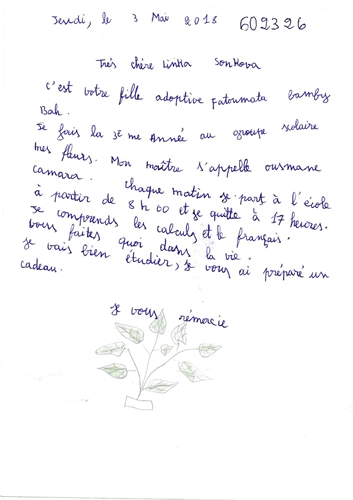 Jeudi, le 3 Mai 2018 602326
Très chère Linka Sonkova
C'est votre fille adoptive Fatoumata bamby
Bah.
Je fais la 3è me Année au groupe scolaire
mes fleurs. Mon maître s'appelle ousmane
camara. chaque matin je part à l'école
à partir de 8h00 et je quitte à 17 heures.
Je comprends les calculs et le français.
vous faites quoi dans la vie.
Je vais bien étudier, je vous ai préparé un
cadeau.
Je vous rémercie